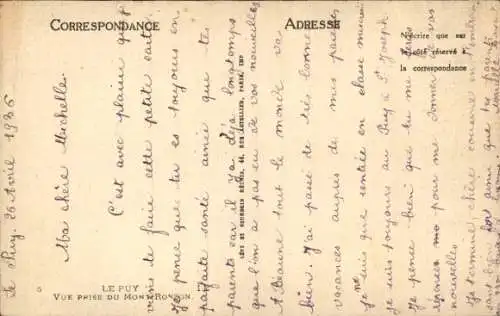 CORRESPONDANCE
ADRESSE
N'écrire que sur
le côté réservé à
la correspondance
Le Puy. 26 Avril 1936
Ma chère Michelle.
C'est avec plaisir que je
viens de faire cette petite carte
Je pense que tu es toujours en
parfaite santé ainsi que tes
parents car il y a déjà longtemps
que l'on a pas eu de vos nouvelles
A Beaune tout le monde va
bien. J'ai passé de très bonnes
vacances auprès de mes parents
je suis que rentrée en classe
je suis toujours au Puy à St Joseph
Je pense bien que tu me
réponse pour me donner de vos
nouvelles
Je termine, chère cousine en
LE PUY
VUE PRISE DU MONT RONZON.